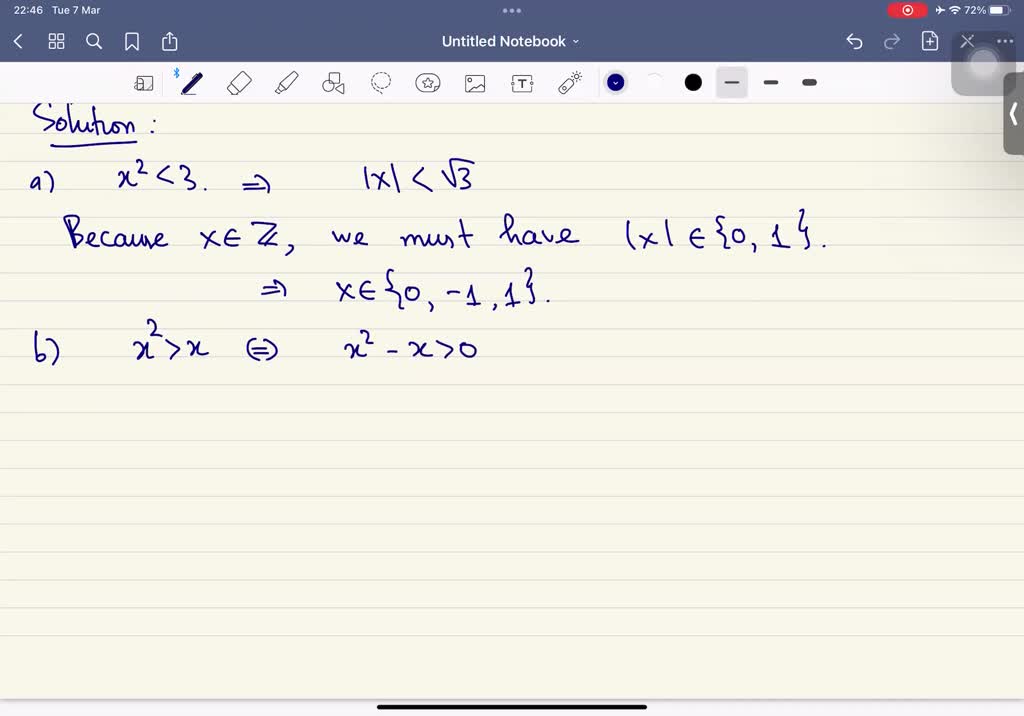 22:46 Tue 7 Mar
72%
Untitled Notebook
Solution :
a) x² < 3. ⇒ |x| < √3
Because x ∈ ℤ, we must have |x| ∈ {0, 1}.
⇒ x ∈ {0, -1, 1}.
b) x² > x ⇔ x² - x > 0